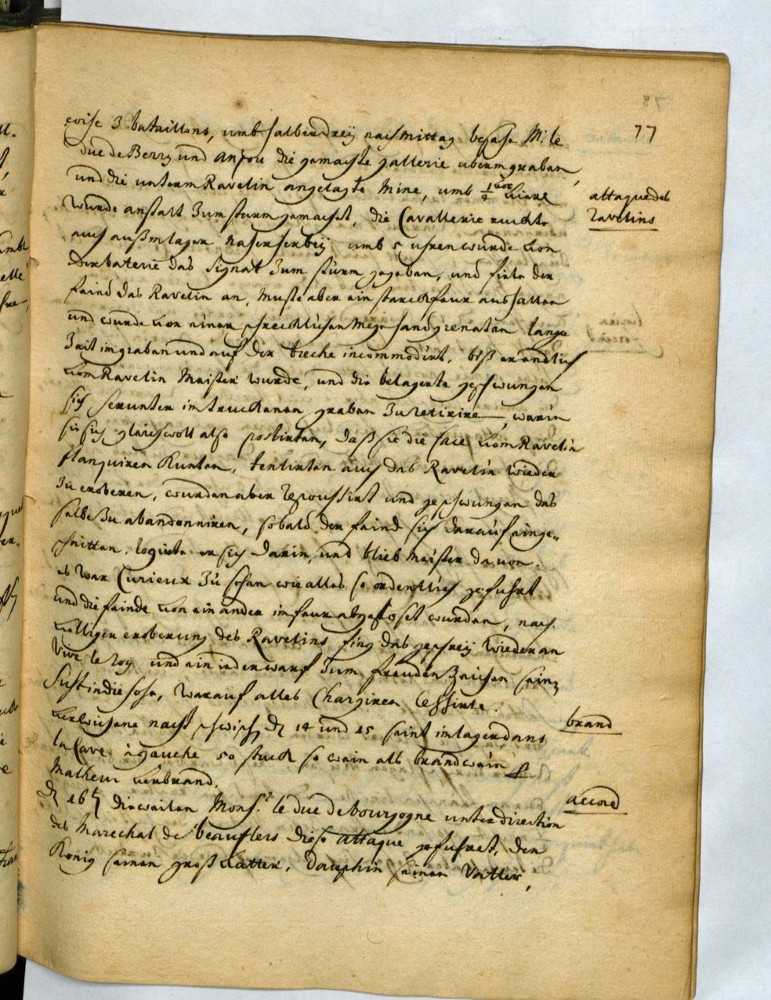 77
çoise 3 bataillons, umb halber drey nachmittag besahe Mr. le
duc de Berry und Anjou die gemachte gallerie überm graben,
und die unterm Ravelin angelegte Mine, umb 1/4 vor
wurde anstalt zum sturm gemacht, die Cavallerie ruckte
auch außm lager näher herbey umb 5 uhren wurde von
der baterie das Signal zum sturm gegeben, und fiele der
faind das Ravelin an, muste aber ein starckh feur aushalten
und wurde von einer schrecklichen menge handgrenaten lange
Zeit im graben und auf der breche incommodirt, biß er endlich
vom Ravelin Maister wurde, und die belagerte gezwungen
sich herunter im truckenen graben zu retirire, warin
sie sich gleichwoll also postirten, daß sie die face vom Ravelin
flanquiren kunten, tentirten auch das Ravelin wieder
zu eroberen, wurden aber repoussirt und gezwungen das
selbe zu abandonniren, sobald der faind sich darauf einge-
schnitten, logirte er sich darin, und blieb maister davon.
es war Curieux zu sehen wie alles so ordentlich gefuhrt
und die fainde von einander im feur abgelöset wurden, nach
völliger eroberung des Ravelins fing das geschrey wieder an
Vive le roy und ein ieder warf zum freuden Zaichen sein
huht in die höhe, warauf alles Chargiren cessirte.
verwichene nacht zwisch den 14 und 15 seint im lager dans
la Cave à gauche 50 stuck so wein als brandwein p
Malheur verbrand.
d 16 dieweilen Monsr. le duc de bourgogne unter direction
des Marechal de beauflers diese attaque gefuhret, den
König seinen großvatter, dauphin seinen Vatter,
attaque des
ravelins
brand
accord